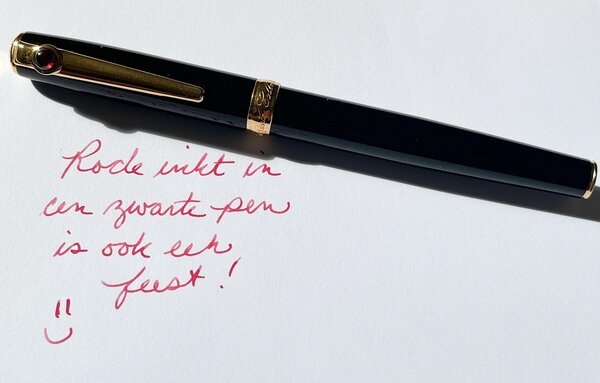 Rode inkt in
een zwarte pen
is ook een
feest!